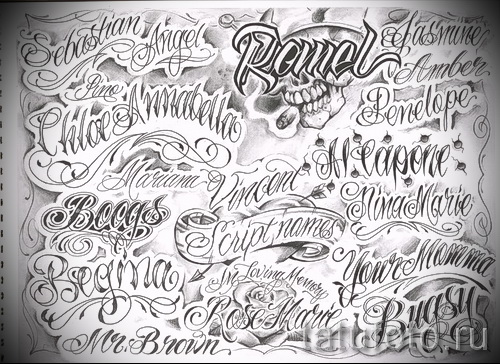 Sebastian
Angel
Ramol
Jasmine
Amber
Penelope
Chloe
Annabella
Al Capone
Mariana
Vincent
Nina Marie
Boogs
Script names
In Loving Memory
Rose Marie
Your Momma
Regina
Bugsy
Mr. Brown
tatufoto.ru